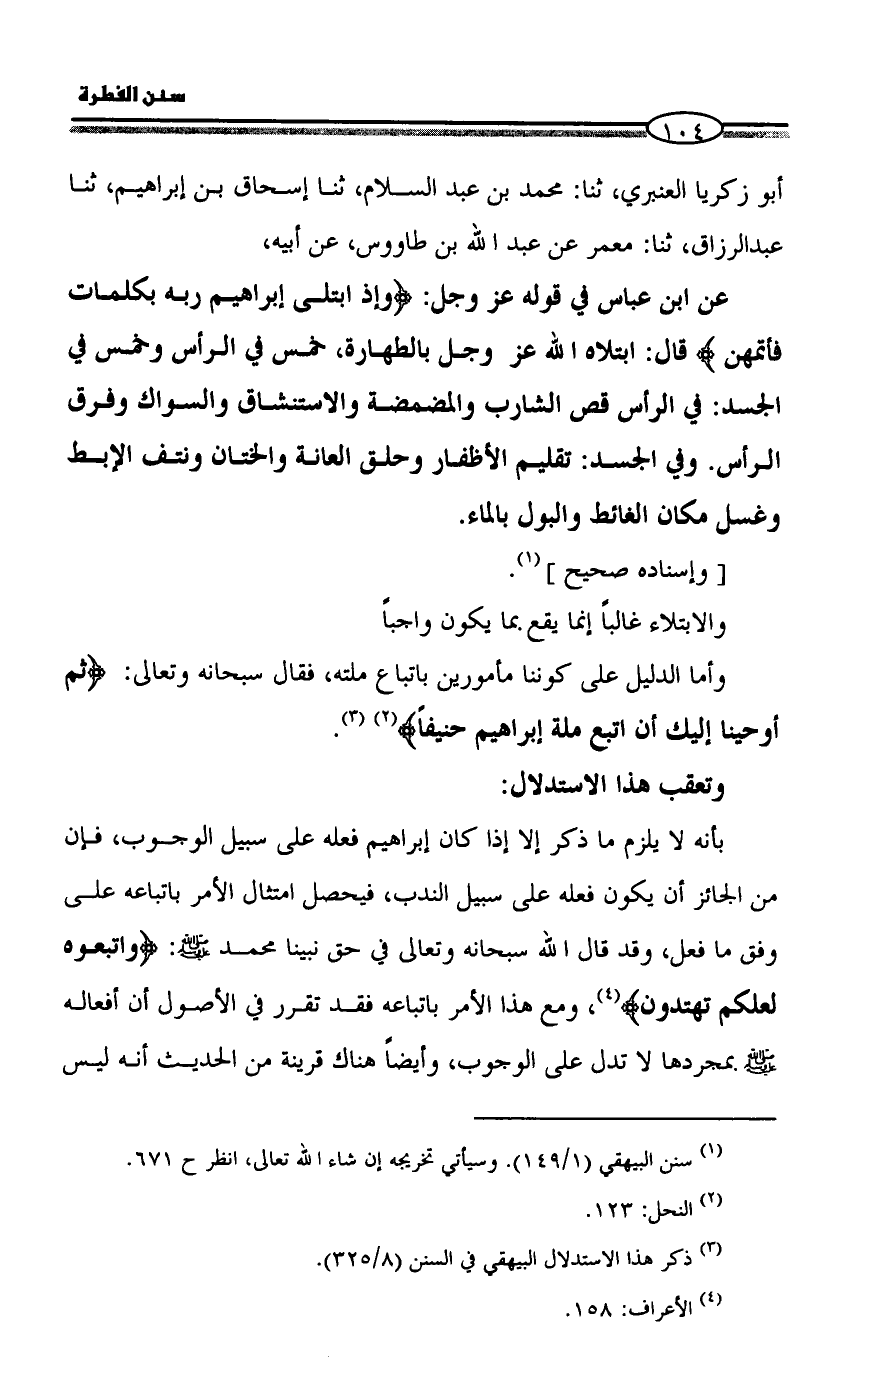 سنن الفطرة
١٠٤
أبو زكريا العنبري، ثنا: محمد بن عبد السلام، ثنا إسحاق بن إبراهيم، ثنا
عبدالرزاق، ثنا: معمر عن عبد الله بن طاووس، عن أبيه،
عن ابن عباس في قوله عز وجل: ﴿وإذ ابتلى إبراهيم ربه بكلمات
فأتمهن﴾ قال: ابتلاه الله عز وجل بالطهارة، خمس في الرأس وخمس في
الجسد: في الرأس قص الشارب والمضمضة والاستنشاق والسواك وفرق
الرأس. وفي الجسد: تقليم الأظفار وحلق العانة والختان ونتف الإبط
وغسل مكان الغائط والبول بالماء.
[ وإسناده صحيح ](١).
والابتلاء غالباً إنما يقع بما يكون واجباً
وأما الدليل على كوننا مأمورين باتباع ملته، فقال سبحانه وتعالى: ﴿ثم
أوحينا إليك أن اتبع ملة إبراهيم حنيفاً﴾(٢) (٣).
وتعقب هذا الاستدلال:
بأنه لا يلزم ما ذكر إلا إذا كان إبراهيم فعله على سبيل الوجوب، فإن
من الجائز أن يكون فعله على سبيل الندب، فيحصل امتثال الأمر باتباعه على
وفق ما فعل، وقد قال الله سبحانه وتعالى في حق نبينا محمد ﷺ: ﴿واتبعوه
لعلكم تهتدون﴾(٤)، ومع هذا الأمر باتباعه فقد تقرر في الأصول أن أفعاله
ﷺ بمجردها لا تدل على الوجوب، وأيضاً هناك قرينة من الحديث أنه ليس
(١) سنن البيهقي (١٤٩/١). وسيأتي تخريجه إن شاء الله تعالى، انظر ح ٦٧١.
(٢) النحل: ١٢٣.
(٣) ذكر هذا الاستدلال البيهقي في السنن (٣٢٥/٨).
(٤) الأعراف: ١٥٨.